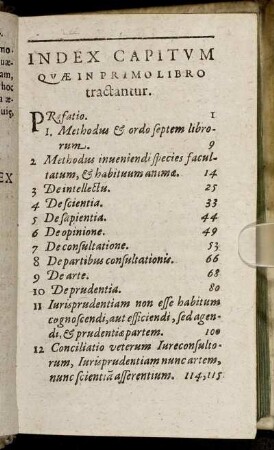 INDEX CAPITVM
QVÆ IN PRIMO LIBRO
tractantur.
PRæfatio. 1
1. Methodus & ordo septem libro-
rum. 9
2 Methodus inueniendi species facul-
tatum, & habituum animæ. 14
3 De intellectu. 25
4 De scientia. 33
5 De sapientia. 44
6 De opinione. 49
7 De consultatione. 53
8 De partibus consultationis. 66
9 De arte. 68
10 De prudentia. 80
11 Iurisprudentiam non esse habitum
cognoscendi, aut efficiendi, sed agen-
di, & prudentiæ partem. 100
12 Conciliatio veterum Iureconsulto-
rum, Iurisprudentiam nunc artem,
nunc scientiā asserentium. 114,115.